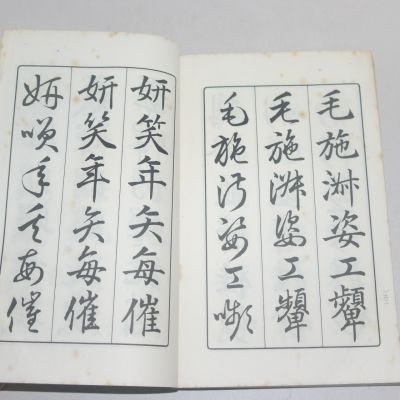 毛施淑姿工顰
毛施淑姿工顰
毛施淑姿工顰
妍笑年矢每催
妍笑年矢每催
妍笑年矢每催